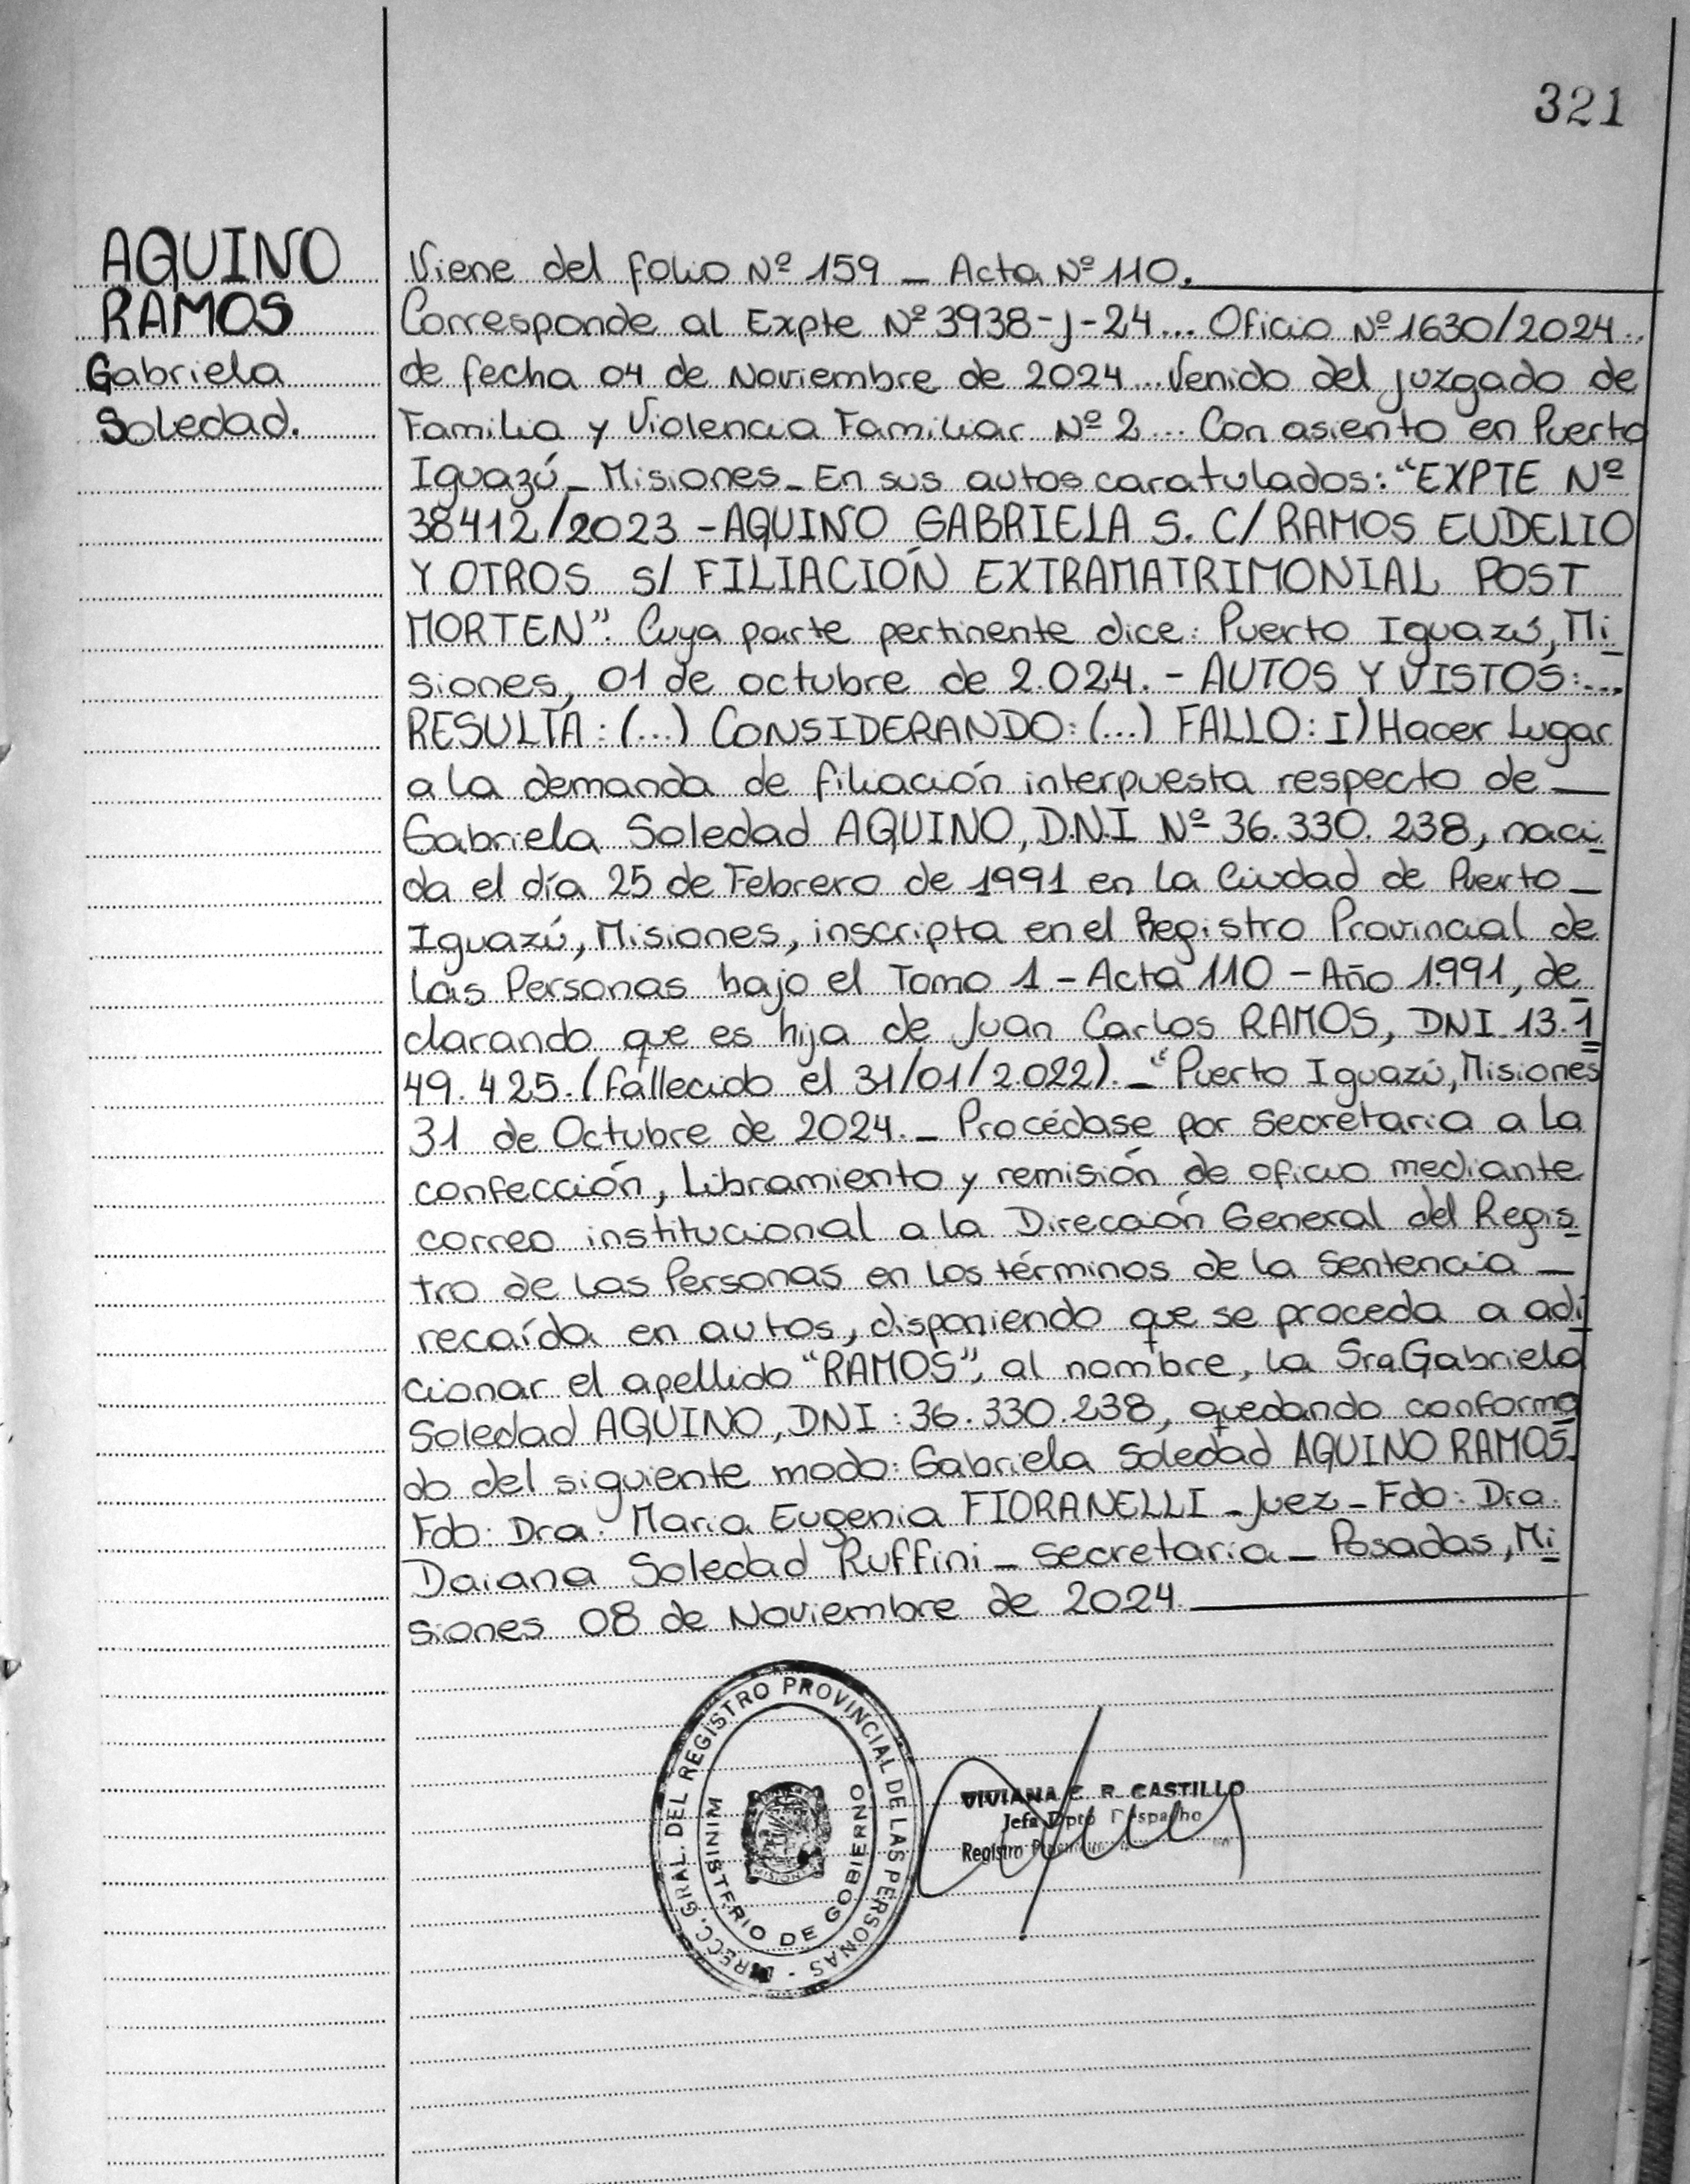 321
AQUINO
RAMOS
Gabriela
Soledad.
Viene del folio Nº 159 _ Acta Nº 110.
Corresponde al Expte Nº 3938-J-24... Oficio Nº 1630/2024..
de fecha 04 de Noviembre de 2024... Venido del Juzgado de
Familia y Violencia Familiar Nº 2... Con asiento en Puerto
Iguazú_ Misiones_ En sus autos caratulados: "EXPTE Nº
38412/2023 - AQUINO GABRIELA S. C/ RAMOS EUDELIO
Y OTROS S/ FILIACIÓN EXTRAMATRIMONIAL POST
MORTEN". Cuya parte pertinente dice: Puerto Iguazú, Mi
siones, 01 de octubre de 2.024. - AUTOS Y VISTOS:...
RESULTA: (...) CONSIDERANDO: (...) FALLO: I) Hacer Lugar
a la demanda de filiación interpuesta respecto de _
Gabriela Soledad AQUINO, D.N.I Nº 36.330.238, naci
da el día 25 de Febrero de 1991 en la Ciudad de Puerto _
Iguazú, Misiones, inscripta en el Registro Provincial de
las Personas bajo el Tomo 1 - Acta 110 - Año 1.991, de
clarando que es hija de Juan Carlos RAMOS, DNI 13.1
49.425. (fallecido el 31/01/2.022). _ "Puerto Iguazú, Misiones
31 de Octubre de 2024. _ Procédase por secretaria a la
confección, Libramiento y remisión de oficio mediante
correo institucional a la Dirección General del Regis
tro de las Personas en los términos de la sentencia _
recaída en autos, disponiendo que se proceda a adi
cionar el apellido "RAMOS", al nombre, la Sra. Gabriela
Soledad AQUINO, DNI: 36.330.238, quedando conforma
do del siguiente modo: Gabriela Soledad AQUINO RAMOS.
Fdo: Dra. Maria Eugenia FIORANELLI _ Juez _ Fdo: Dra.
Daiana Soledad Ruffini _ secretaria _ Posadas, Mi
siones 08 de Noviembre de 2024.
DIRECC. GRAL. DEL REGISTRO PROVINCIAL DE LAS PERSONAS -
MINISTERIO DE GOBIERNO
MISIONES
VIVIANA C. R. CASTILLO
Jefa Dpto Despacho
Registro